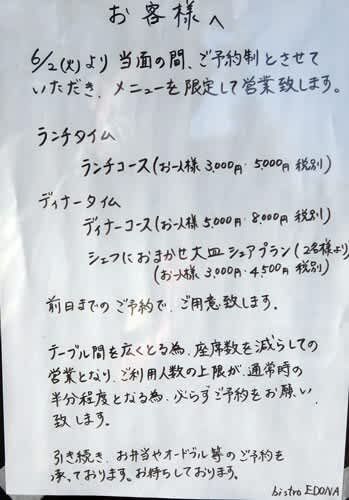 お客様へ
6/2(火)より当面の間、ご予約制とさせて
いただき、メニューを限定して営業致します。
ランチタイム
ランチコース(お一人様 3,000円・5,000円 税別)
ディナータイム
ディナーコース(お一人様 5,000円・8,000円 税別)
シェフにおまかせ大皿シェアプラン(2名様より)
(お一人様 3,000円・4,500円 税別)
前日までのご予約で、ご用意致します。
テーブル間を広くとる為、座席数を減らしての
営業となり、ご利用人数の上限が、通常時の
半分程度となる為、必らずご予約をお願い
致します。
引き続き、お弁当やオードブル等のご予約を
承っております。お待ちしております。
bistro EDONA